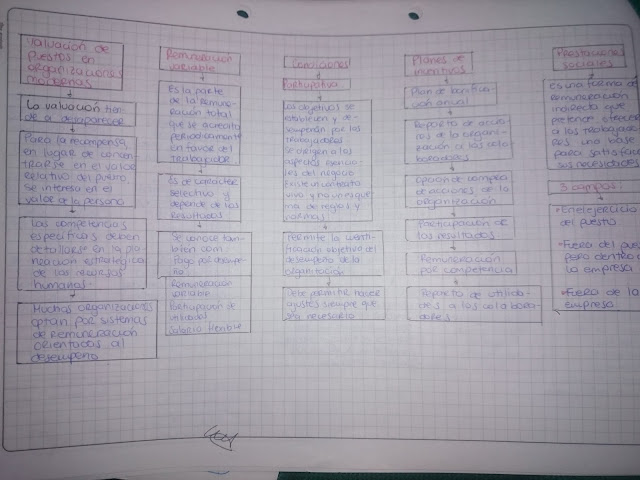 Valuación de
puestos en
organizaciones
modernas
La valuación tien-
de a desaparecer
Para la recompensa,
en lugar de concen-
trarse en el valor
relativo del puesto.
se interesa en el
valor de la persona
Las competencias
específicas deben
detallarse en la pla-
neación estratégica
de los recursos
humanos.
Muchas organizaciones
optan por sistemas
de remuneración
orientados al
desempeño
Remuneración
variable
Es la parte
de la remune-
ración total
que se acredita
periodicamente
en favor del
trabajador
Es de carácter
selectivo y
depende de los
resultados
Se conoce tam-
bien como
Pago por desempe-
ño
Remuneración
variable
Participación de
utilidades
Salario flexible
Condiciones
Participativa
Los objetivos se
establecen y de-
sempeñan por los
trabajadores
Se dirigen a los
aspectos esencia-
les del negocio
Existe un contrato
vivo y no un esque-
ma de reglas y
normas
Permite la cuanti-
ficación objetiva del
desempeño de la
organización
Debe permitir hacer
ajustes siempre que
sea necesario
Planes de
incentivos
Plan de bonifica-
ción anual
Reparto de accio-
nes de la organi-
zación a los cola
boradores
Opción de compra
de acciones de la
organización
Participación de
los resultados
Remuneración
por competencia
Reparto de utilida-
des a los colabora-
dores
Prestaciones
sociales
Es una forma de
remuneración
indirecta que
pretende ofrecer
a los trabajado
res una base
para satisfacer
sus necesidades
3 campos
• En el ejercicio
del puesto
• Fuera del puesto
pero dentro de
la empresa
• Fuera de la
empresa